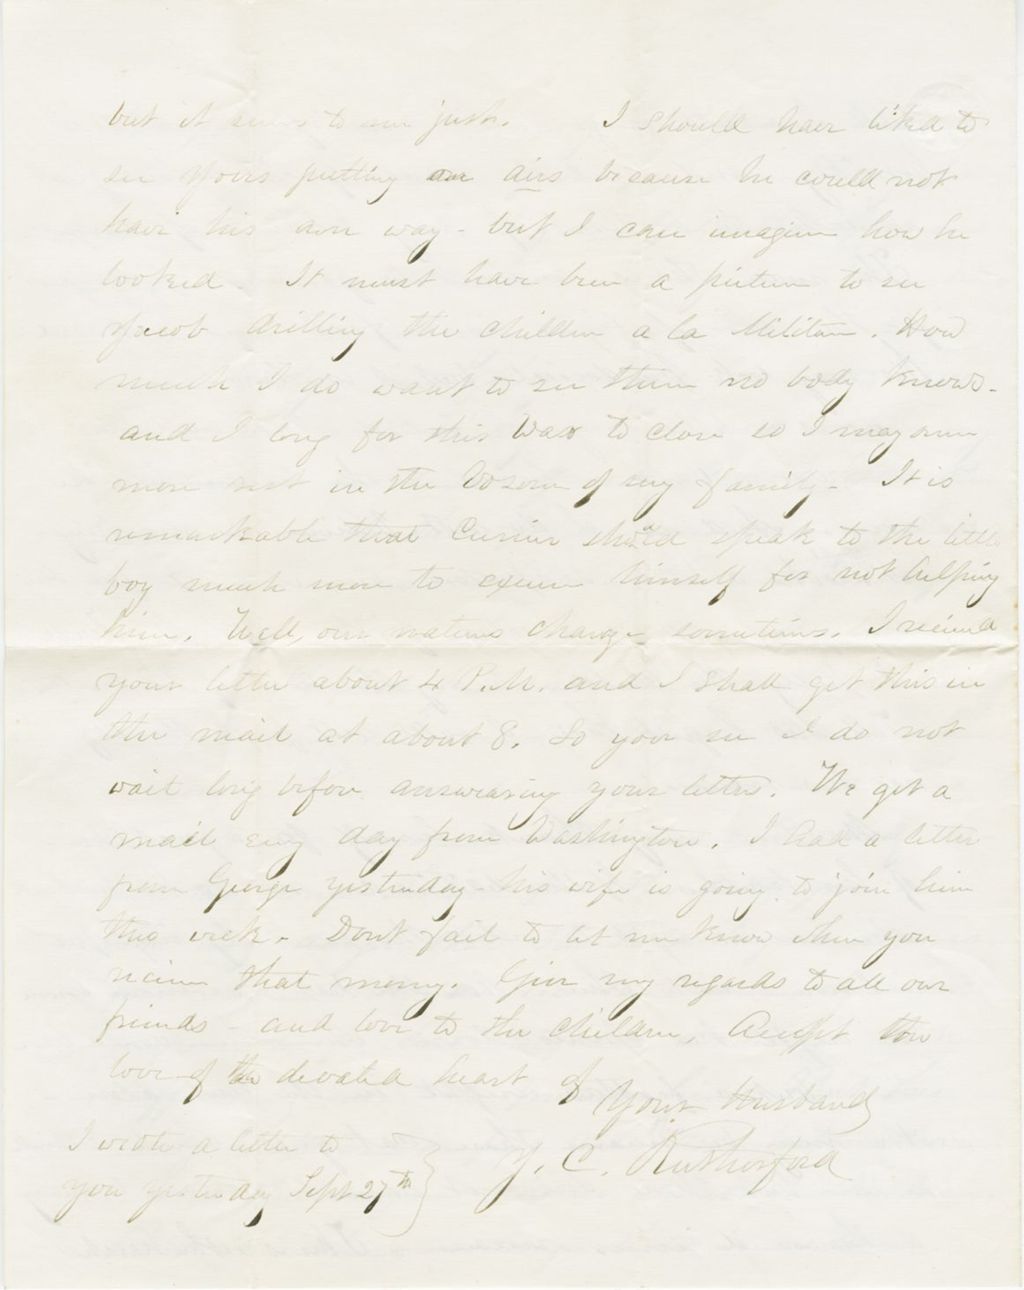 but it seems to me just. I should have liked to
see yours putting on airs because he could not
have his own way - but I can imagine how he
looked. It must have been a picture to see
Jacob drilling the children a la Militare. How
much I do want to see them no body knows -
and I long for this War to close so I may once
more rest in the bosom of my family - It is
remarkable that Currier should speak to the little
boy much more to excuse himself for not helping
him. Well, our natures change sometimes. I received
your letter about 4 P.M. and I shall get this in
the mail at about 8. So you see I do not
wait long before answearing your letters. We get a
mail evry day from Washington. I had a letter
from George yesterday - his wife is going to join him
this week. Dont fail to let me know when you
receive that money. Give my regards to all our
friends - and love to the children, Accept the
love of the devoted heart of
Your Husband
J. C. Rutherford
I wrote a letter to
you yesterday Sept 27th